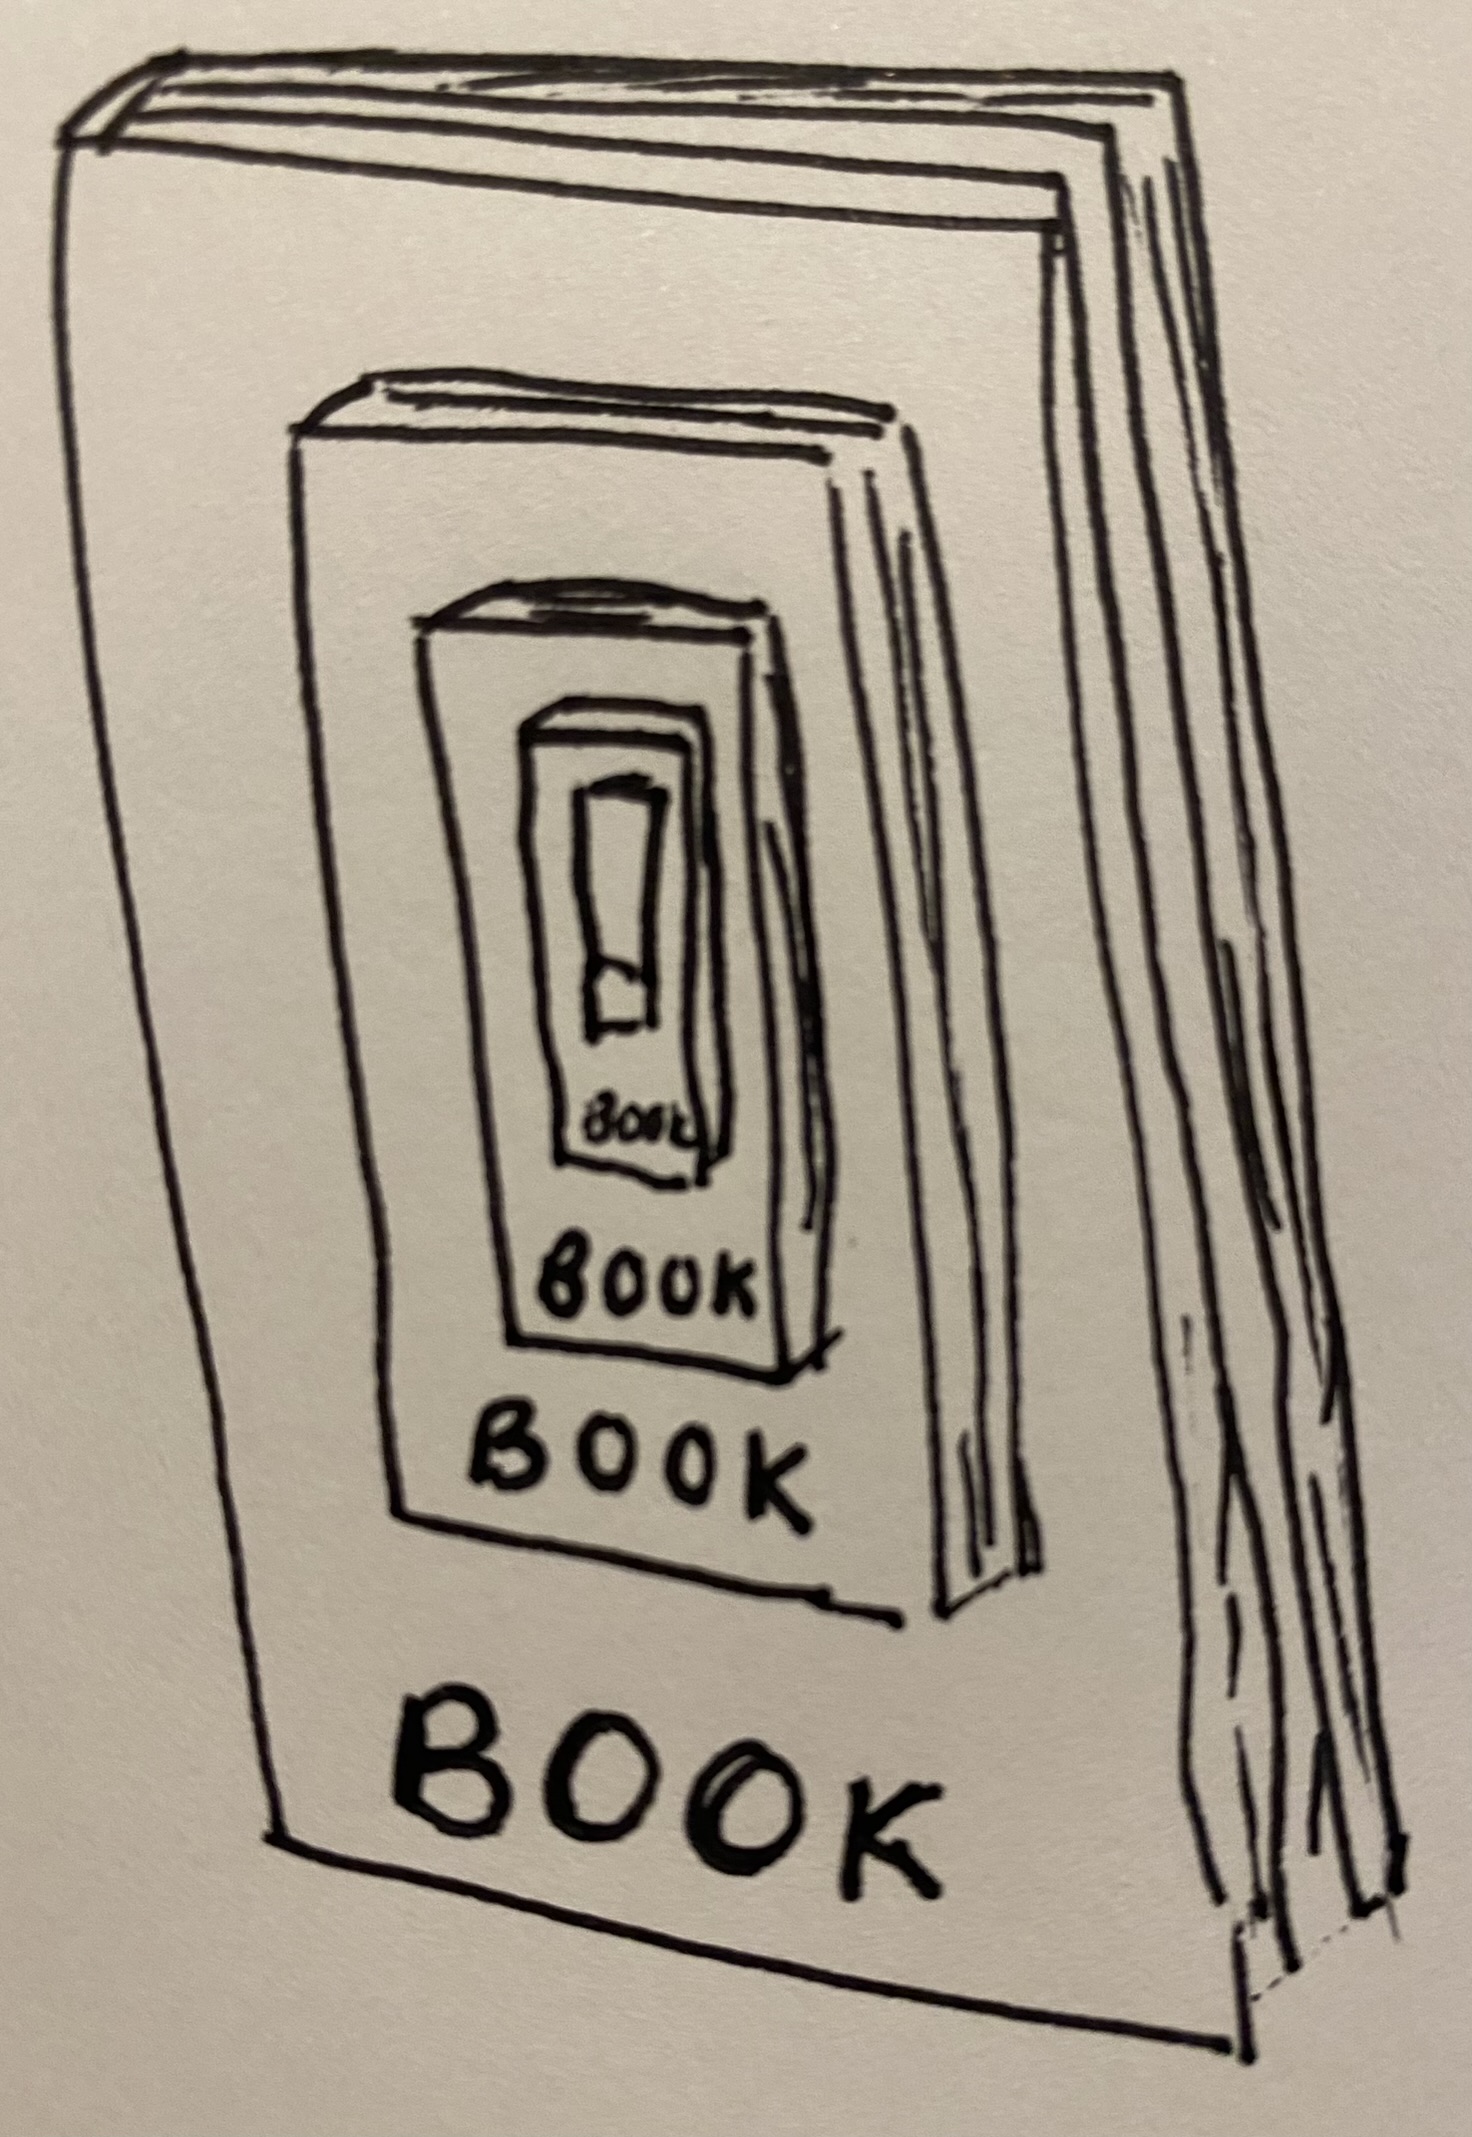 Book
BOOK
BOOK
BOOK